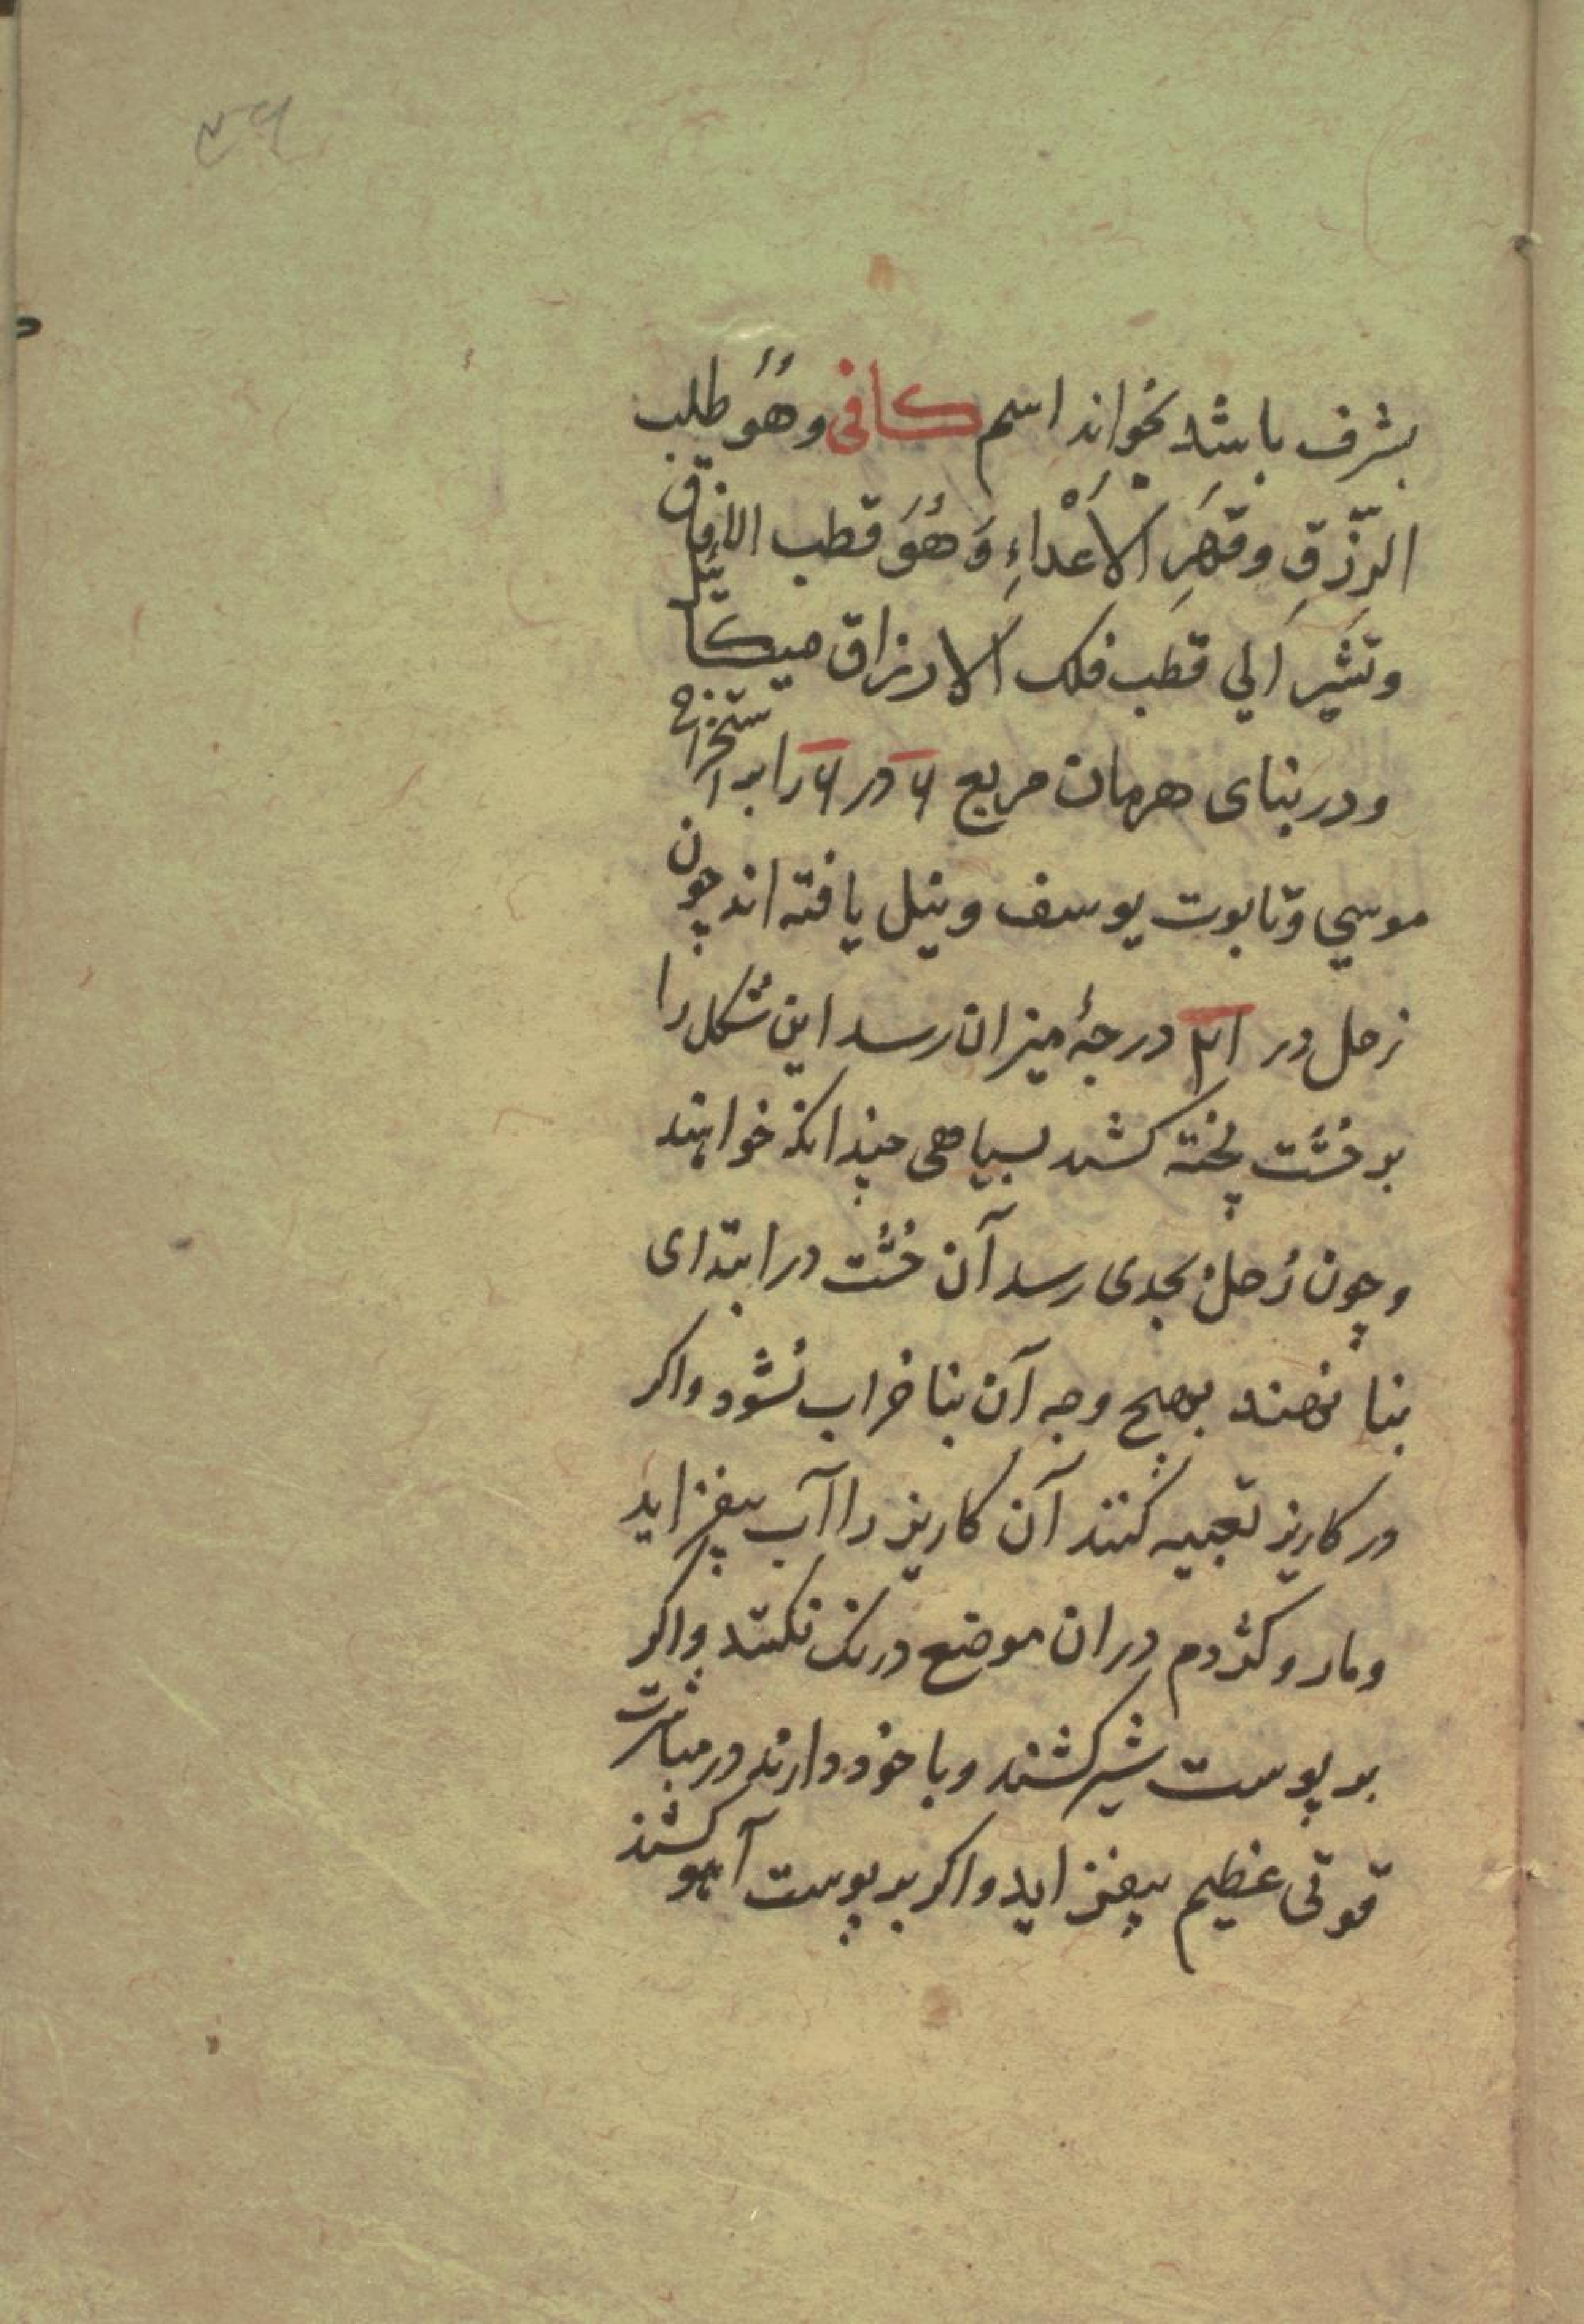 ۴۹
بشرف باشد بخواند اسم کافی وهُوَ طلب
الرِّزقِ وقَهَرِ الاَعْداءِ وَهُوَ قطب الافاق
وتشير الي قطب فلك الارزاق ميكائيل
ودر بنای هرمان مربع ۶ در ۶ را بر استخراج
موسي وتابوت يوسف ونيل يافته اند چون
زحل در ۲۱ درجهٔ ميزان رسد اين شكل را
بر خشت پخته كشند بسياهی چندانكه خواهند
وچون زحل بجدی رسد آن خشت در ابتدای
بنا نهند بهيچ وجه آن بنا خراب نشود واكر
در كاريز تعبيه كنند آن كاريز را آب بيفزايد
ومار وكژدم دران موضع درنك نكنند واكر
بر پوست شير كشند وبا خود دارند در مباشرت
قوتی عظيم بيفزايد واكر بر پوست آهو كشند